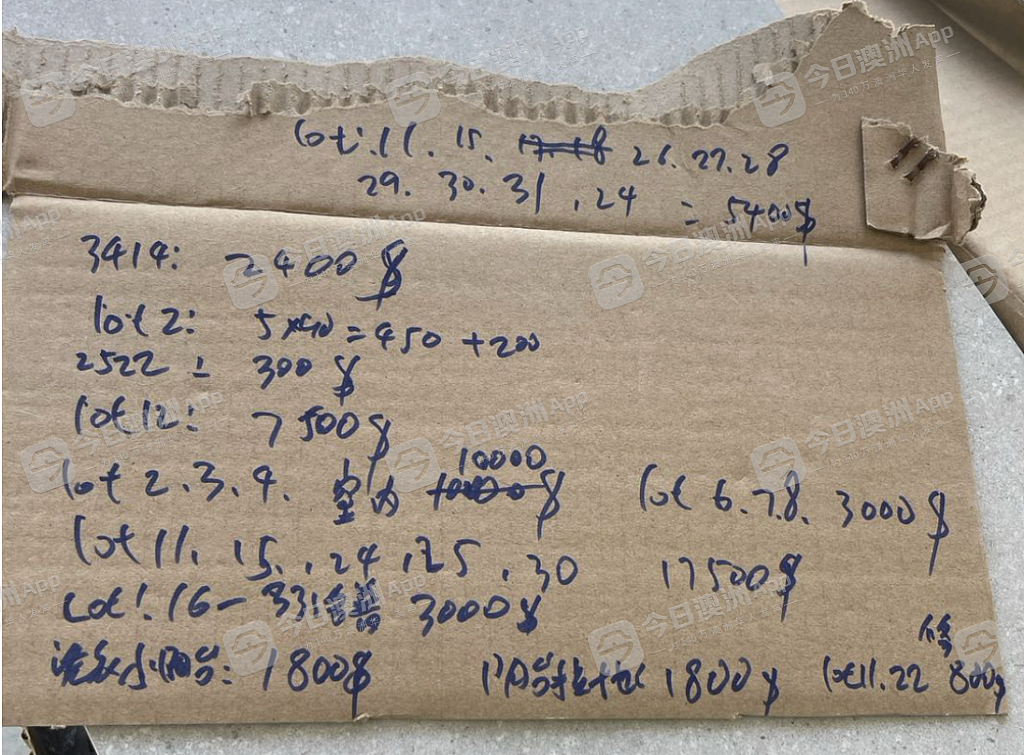 lot:11.15. 26.27.28
29.30.31,24 = 5400$
3414: 2400$
lot 2: 5×90=450+200
2522: 300$
lot12: 7500$
lot 2.3.4. 室内 10000$ lot 6.7.8. 3000$
lot11.15.,24,25,30 17500$
Lot:16-33 3000$
小阳台: 1800$ 1800$ lot11.22 800$
今日澳洲App